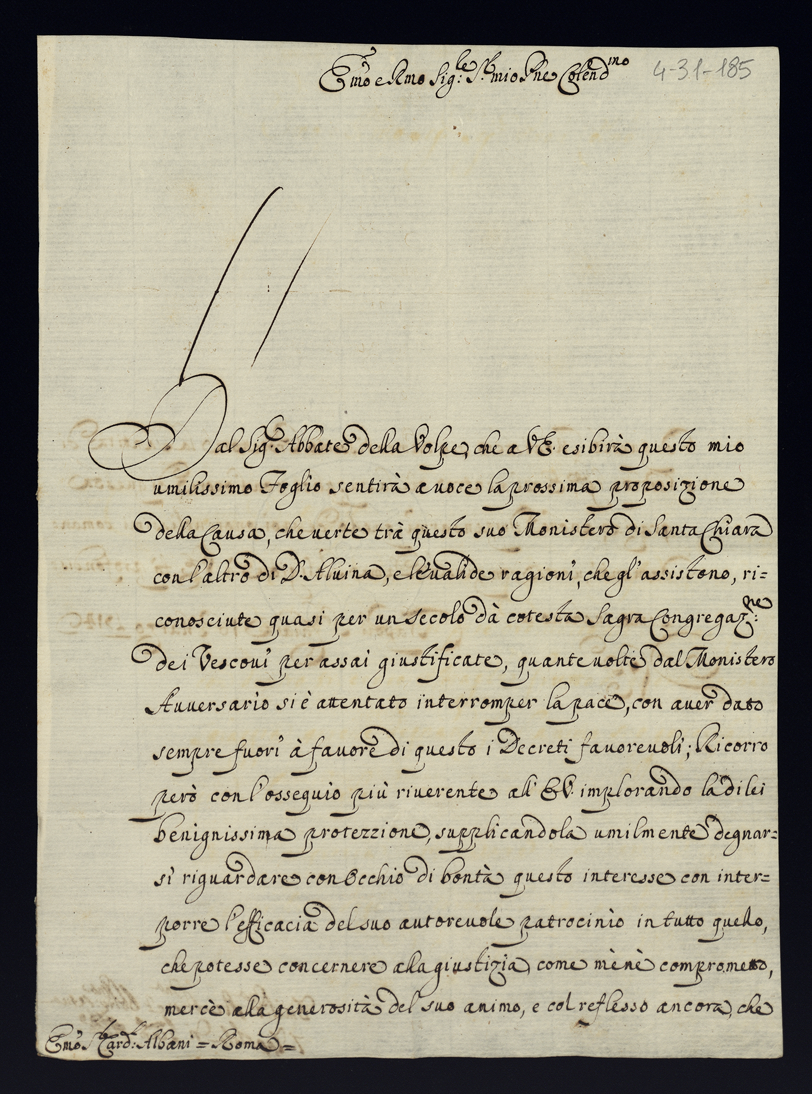 Em͞o e R͞mo Sig:re S.r mio P͞ne Colend.mo
4-31-185
Dal Sig.r Abbate della Volpe, che a V.E. esibirà questo mio
umilissimo Foglio sentirà a voce la prossima proposizione
della Causa, che verte trà questo suo Monistero di Santa Chiara
con l'altro di D. Aluina, e le valide ragioni, che gl'assistono, ri=
conosciute quasi per un secolo dà cotesta Sagra Congregaz:ne
dei Vescovi per assai giustificate, quante volte dal Monistero
Avversario si è attentato interromper la pace, con aver dato
sempre fuori à favore di questo i Decreti favorevoli; Ricorro
però con l'ossequio più riverente all'E.V. implorando la di lei
benignissima protezzione, supplicandola umilmente degnar=
si riguardare con occhio di bontà questo interesse con inter=
porre l'efficacia del suo autorevole patrocinio in tutto quello,
che potesse concernere alla giustizia, come mè nè comprometto,
mercè alla generosità del suo animo, e col reflesso ancora, che
Em͞o S.r Card: Albani = Roma =